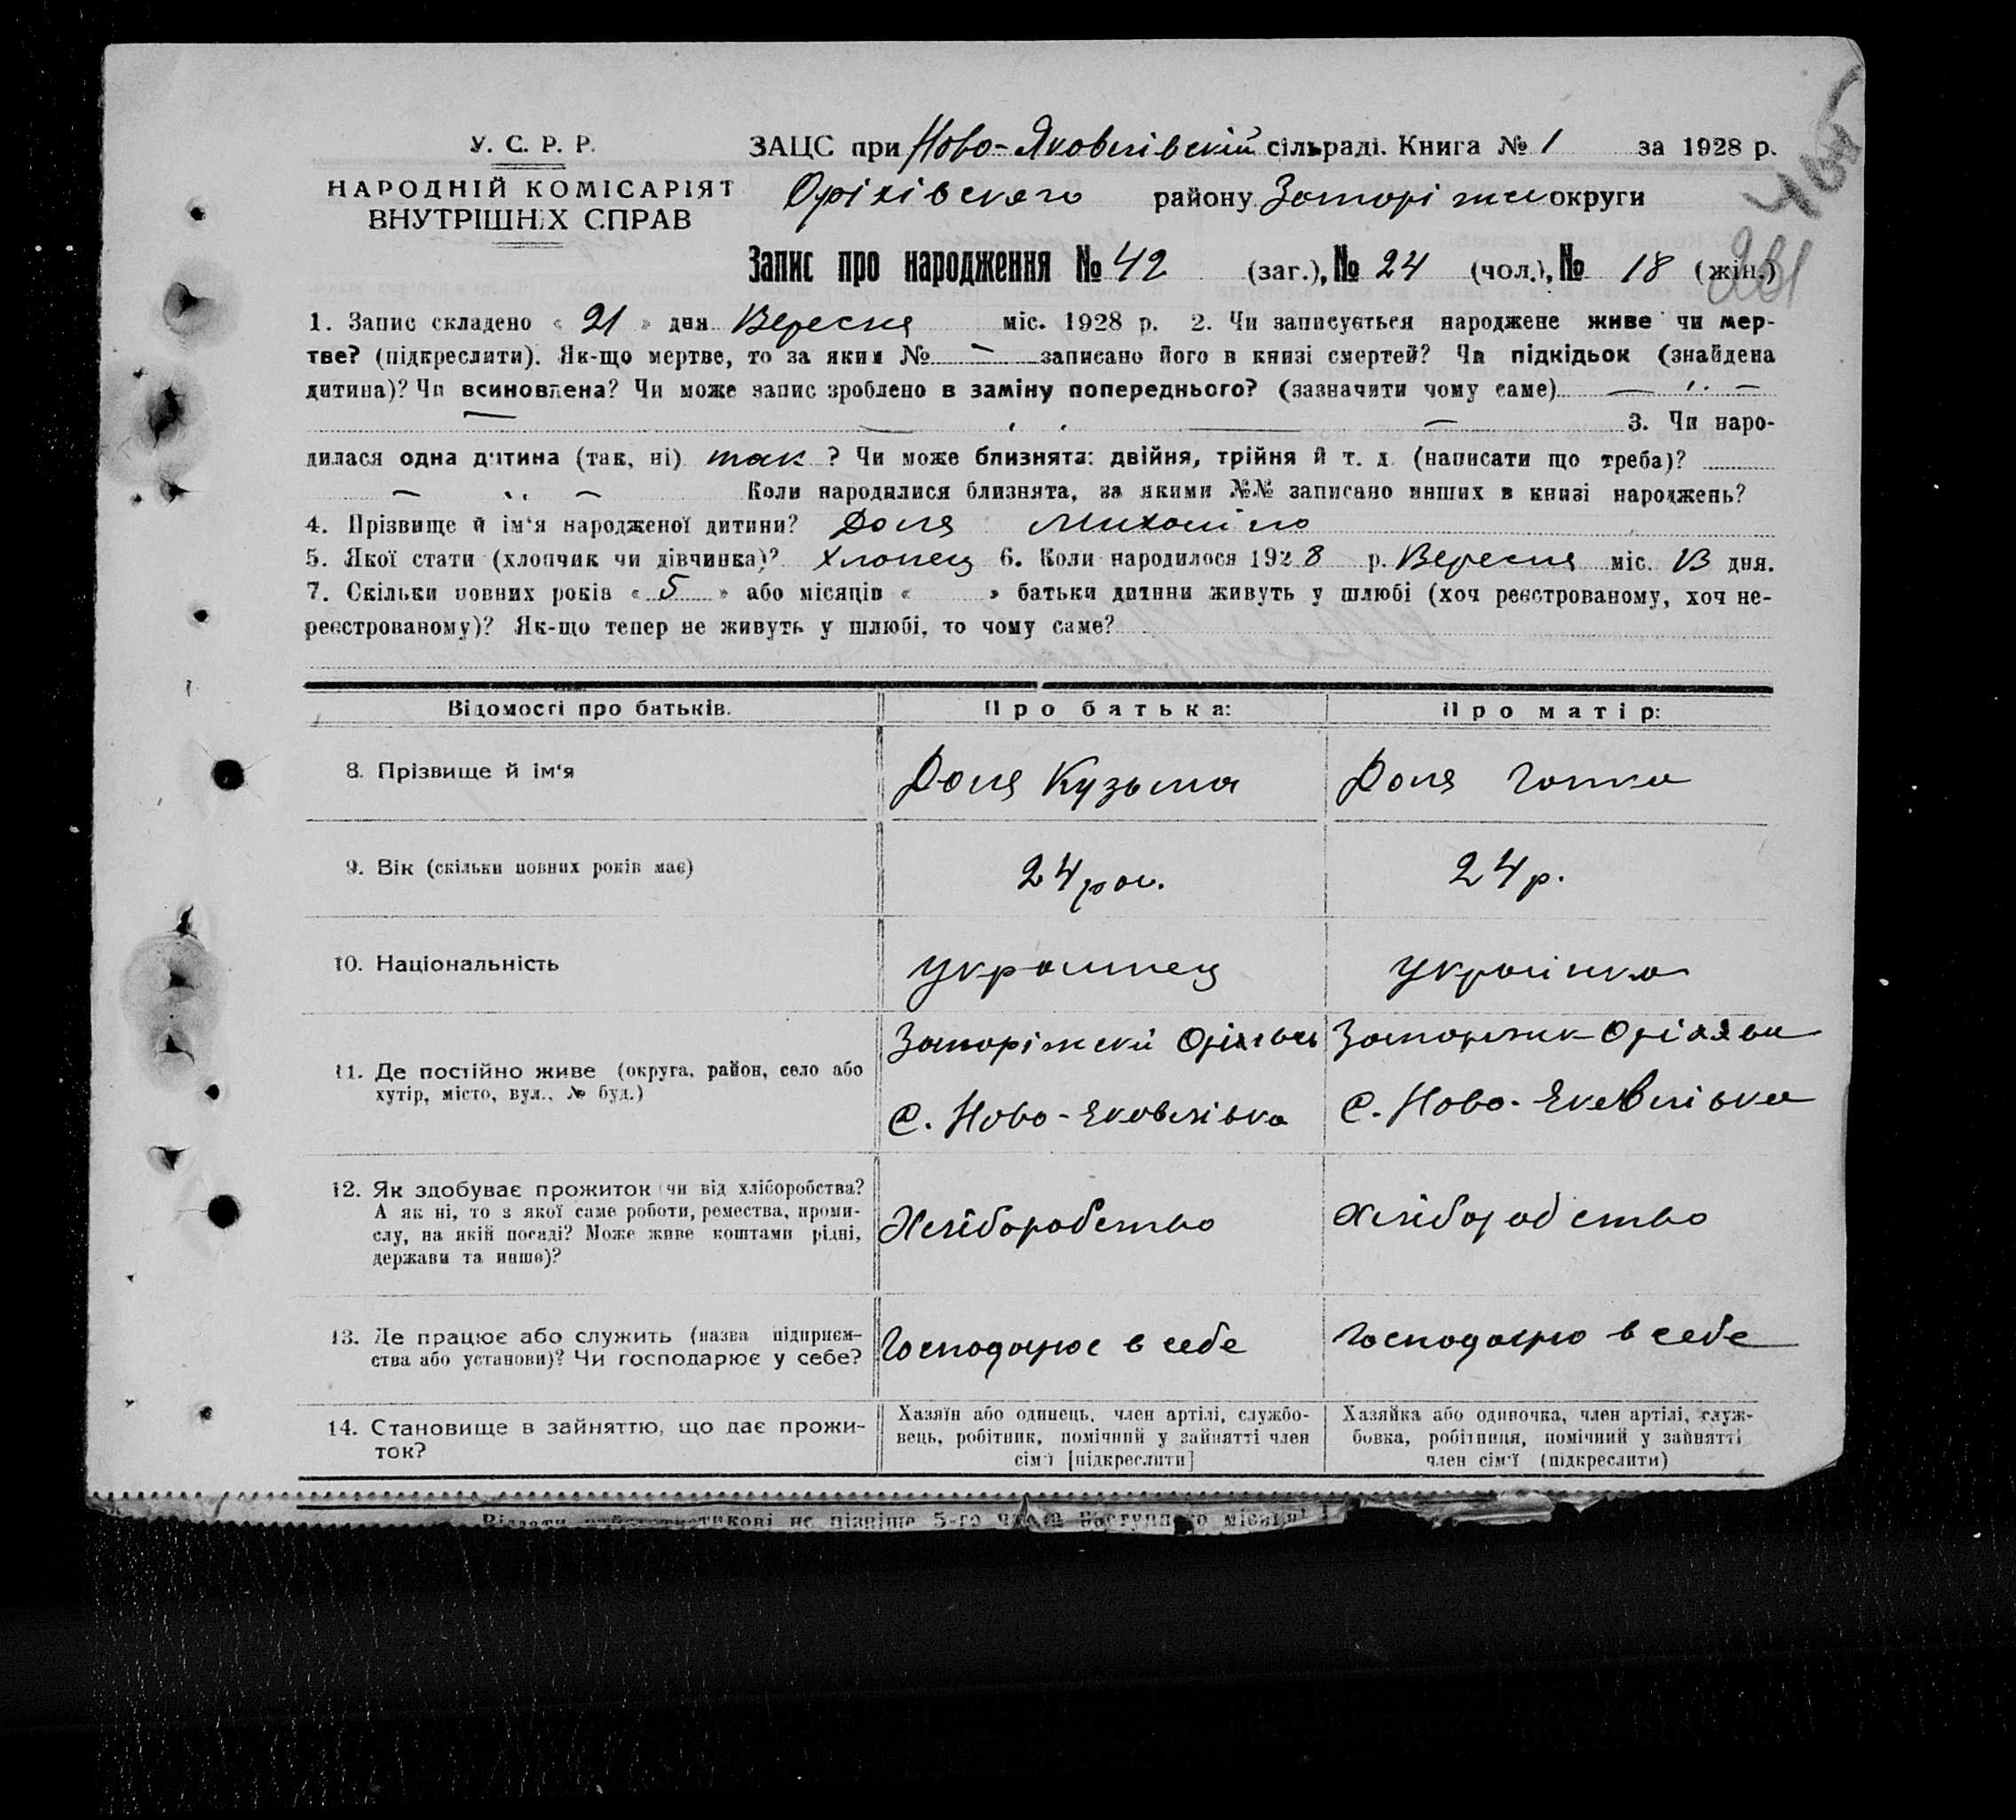 У. С. Р. Р.
НАРОДНІЙ КОМІСАРІЯТ
ВНУТРІШНІХ СПРАВ
ЗАЦС при Ново-Яковлівській сільраді. Книга № 1 за 1928 р.
Оріхівського району Запоріжс округи
Запис про народження № 42 (заг.), № 24 (чол.), № 18 (жін.)
231
1. Запис складено « 21 » дня Вересня міс. 1928 р. 2. Чи записується народжене живе чи мер-
тве? (підкреслити). Як-що мертве, то за яким № — записано його в книзі смертей? Чи підкідьок (знайдена
дитина)? Чи всиновлена? Чи може запис зроблено в заміну попереднього? (зазначити чому саме) — ,, —
— ,, — 3. Чи наро-
дилася одна дитина (так, ні) так ? Чи може близнята: двійня, трійня й т. д. (написати що треба)?
— ,, — Коли народилися близнята, за якими №№ записано инших в книзі народжень?
4. Прізвище й ім‘я народженої дитини? Доля Михайло
5. Якої стати (хлопчик чи дівчинка)? Хлопец 6. Коли народилося 1928 р. Вересня міс. 13 дня.
7. Скільки повних років « 5 » або місяців « » батьки дитини живуть у шлюбі (хоч реєстрованому, хоч не-
реєстрованому)? Як-що тепер не живуть у шлюбі, то чому саме?
Відомості про батьків. Про батька: Про матір:
8. Прізвище й ім‘я Доля Кузьма Доля Гапка
9. Вік (скільки повних років має) 24 рок. 24 р.
10. Національність украинец українка
11. Де постійно живе (округа, район, село або
хутір, місто, вул., № буд.)
Запоріжскій Оріхівсь
С. Ново-Яковлівка
Оріхівсь
С. Ново-Яковлівка
12. Як здобуває прожиток (чи від хліборобства?
А як ні, то з якої саме роботи, ремества, проми-
слу, на якій посаді? Може живе коштами рідні,
держави та инше)?
Хліборобство Хліборобство
13. Де працює або служить (назва підприєм-
ства або установи)? Чи господарює у себе?
Господарює в себе Господарю в себе
14. Становище в зайняттю, що дає прожи-
ток?
Хазяїн або одинець, член артілі, службо-
вець, робітник, помічний у зайнятті член
сім‘ї [підкреслити]
Хазяйка або одиночка, член артілі, служ-
бовка, робітниця, помічний у зайнятті
член сім‘ї (підкреслити)
не пізніше 5-го числа наступного місяця!